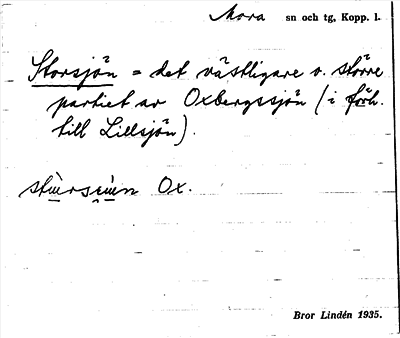 Mora sn och tg, Kopp. l.
Storsjön = det västligare o. större
partiet av Oxbergssjön (i förh.
till Lillsjön).
Ox.
Bror Lindén 1935.